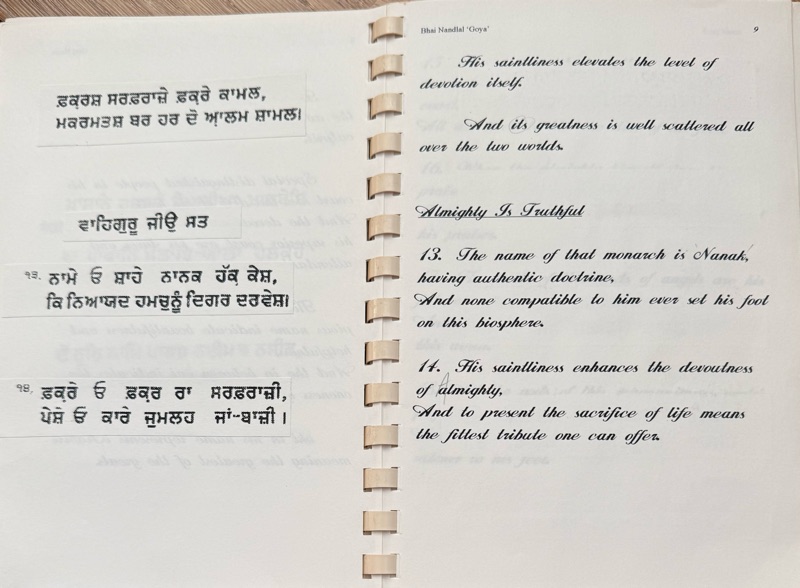 ਫ਼ਕ੍ਰਸ਼ ਸਰਫ਼ਰਾਜ਼ੇ ਫ਼ਕ੍ਰੇ ਕਾਮਲ,
ਮਕਰਮਤਸ਼ ਬਰ ਹਰ ਦੋ ਆ਼ਲਮ ਸ਼ਾਮਲ।
ਵਾਹਿਗੁਰੂ ਜੀਉ ਸਤ
੧੩. ਨਾਮੇ ਓ ਸ਼ਾਹੇ ਨਾਨਕ ਹੱਕ੍ ਕੇਸ਼,
ਕਿ ਨਿਆਯਦ ਹਮਚੁਨੂੰ ਦਿਗਰ ਦਰਵੇਸ਼।
੧੪. ਫ਼ਕ੍ਰੇ ਓ ਫ਼ਕ੍ਰ ਰਾ ਸਰਫ਼ਰਾਜ਼ੀ,
ਪੇਸ਼ੇ ਓ ਕਾਰੇ ਜੁਮਲਹ ਜਾਂ-ਬਾਜ਼ੀ।
Bhai Nandlal 'Goya' 9
His saintliness elevates the level of
devotion itself.
And its greatness is well scattered all
over the two worlds.
Almighty Is Truthful
13. The name of that monarch is Nanak,
having authentic doctrine,
And none compatible to him ever set his foot
on this biosphere.
14. His saintliness enhances the devoutness
of almighty,
And to present the sacrifice of life means
the fittest tribute one can offer.